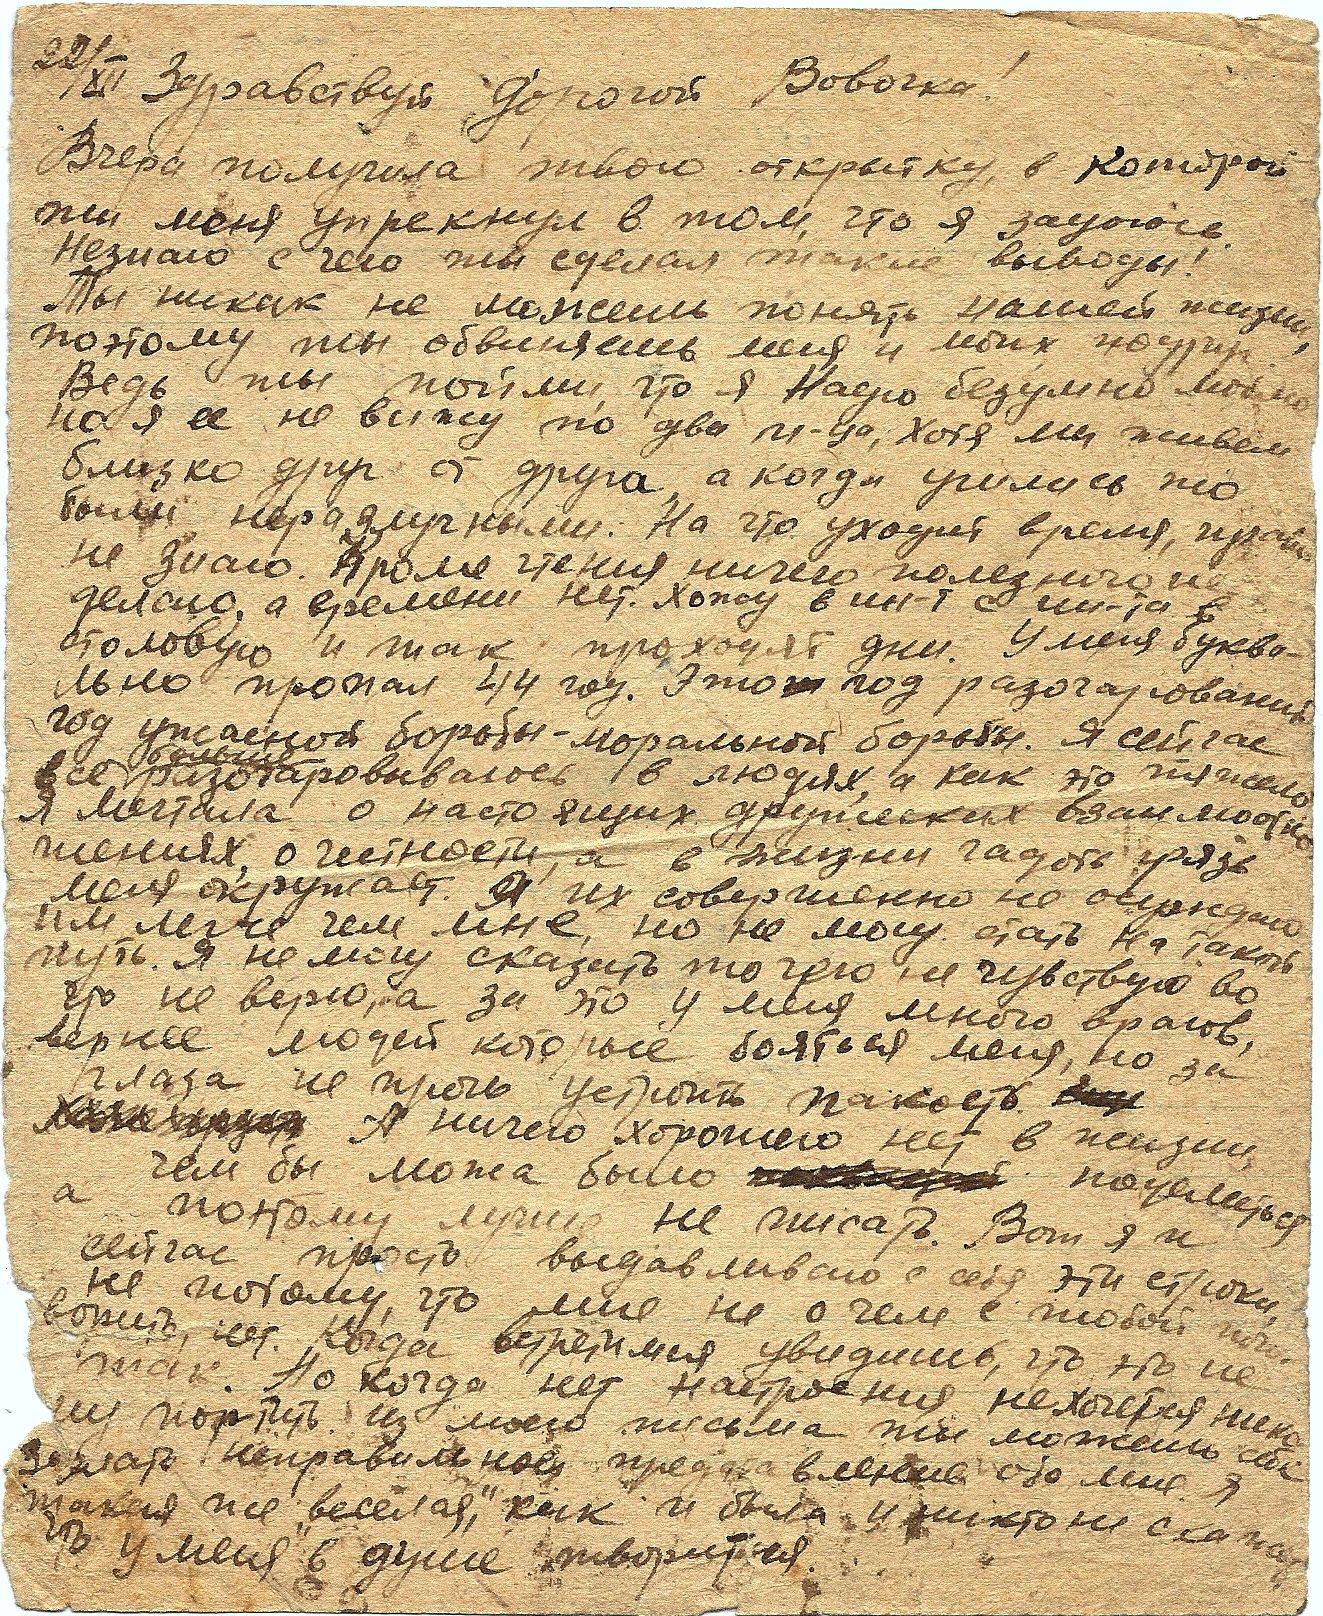 22/XII Здравствуй Дорогой Вовочка!
Вчера получила твою открытку, в которой
ты меня упрекнул в том, что я зазнаюсь.
Незнаю с чего ты сделал такие выводы!
Ты никак не можешь понять нашей жизни,
поэтому ты обвиняешь меня и моих подруг.
Ведь ты пойми, что я Надю безумно люблю
но я ее не вижу по два м-ца, хотя мы живем
близко друг от друга, а когда учились то
были неразлучными. На что уходит время, право
не знаю. Кроме чтения ничего полезного не
делаю, а времени нет. Хожу в ин-т с ин-та в
столовую и так проходят дни. У меня буква-
льно пропал 44 год. Этот год разочарований
год ужасной борьбы-моральной борьбы. Я сейчас
все больше разочаровываюсь в людях, а как это тяжело
Я мечтала о настоящих дружеских взаимоотно-
шениях, о честности, а в жизни гадость грязь
меня окружает. Я их совершенно не осуждаю
им легче чем мне, но не могу стать на такой
путь. Я не могу сказать то чего не чувствую во
что не верю, а за это у меня много врагов,
вернее людей которые бояться меня, но за
глаза не прочь устроить пакость.
А ничего хорошего нет в жизни,
чем бы можа было поделиться
а поэтому лучше не писать. Вот я и
сейчас просто выдавливаю с себя эти строки,
не потому, что мне не о чем с тобой пого-
ворить, нет. Когда встретимся увидишь, что это не
так. Но когда нет настроения не хочется нико-
му портить. из моего письма ты можешь себе
создать неправильное представление обо мне. Я
такая же "веселая", как и была и никто не скажет
что у меня в душе творится.